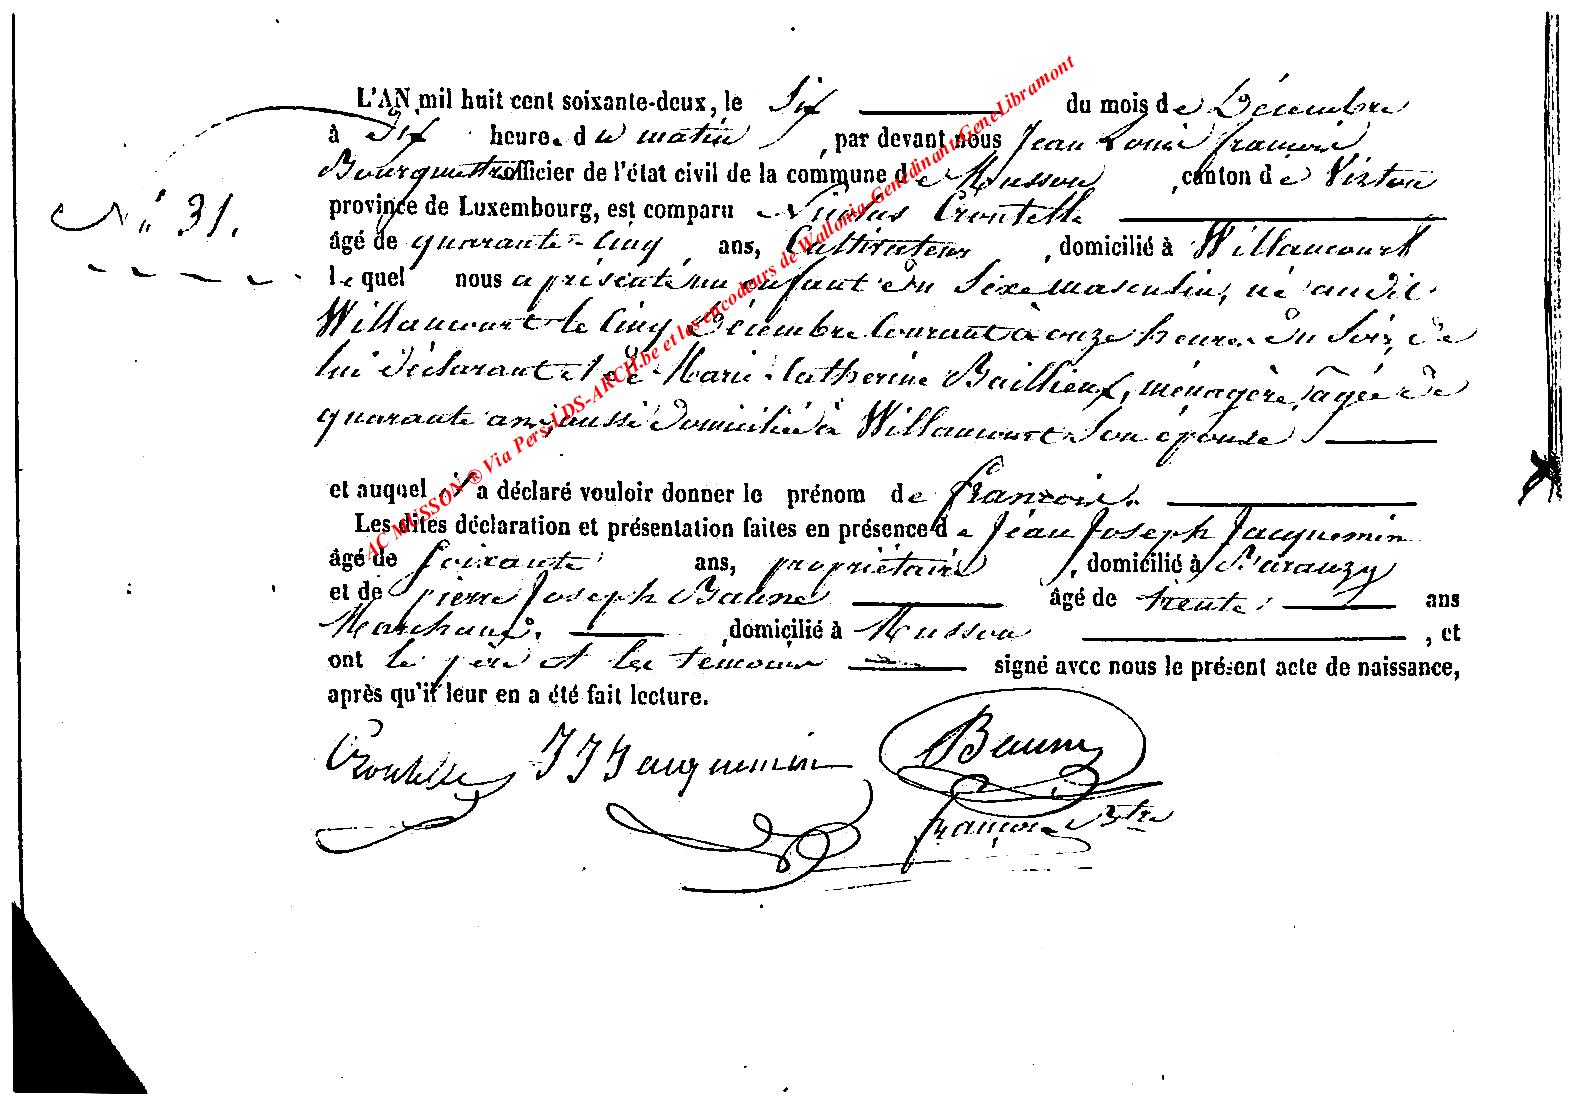 L'AN mil huit cent soixante-deux, le Six du mois de Décembre
à Dix heures du matin, par devant nous Jean Louis françois
officier de l'état civil de la commune de Musson, canton de Virton
N° 31.
province de Luxembourg, est comparu Nicolas Croutelle
âgé de quarante-Cinq ans, Cultivateur, domicilié à Willancourt
lequel nous a présenté un enfant du Sexe masculin, né audit
Willancourt le Cinq Décembre Courant à onze heures du Soir, de
lui déclarant et de Marie-Catherine Baillieux, ménagère, âgée de
quarante ans, aussi domiciliée à Willancourt Son épouse
et auquel il a déclaré vouloir donner le prénom de françois.
Les dites déclaration et présentation faites en présence de Jean Joseph Jacquemin
âgé de Soixante ans, propriétaire, domicilié à
et de pierre Joseph Baune âgé de trente ans
Marchand, domicilié à Musson, et
ont le père et les témoins signé avec nous le présent acte de naissance,
après qu'il leur en a été fait lecture.
Croutelle JJJacquemin Baune
françois
AC MUSSON ® Via Pers.LDS-ARCH.be et les encodeurs de Wallonia-Genedinant-GeneLibramont